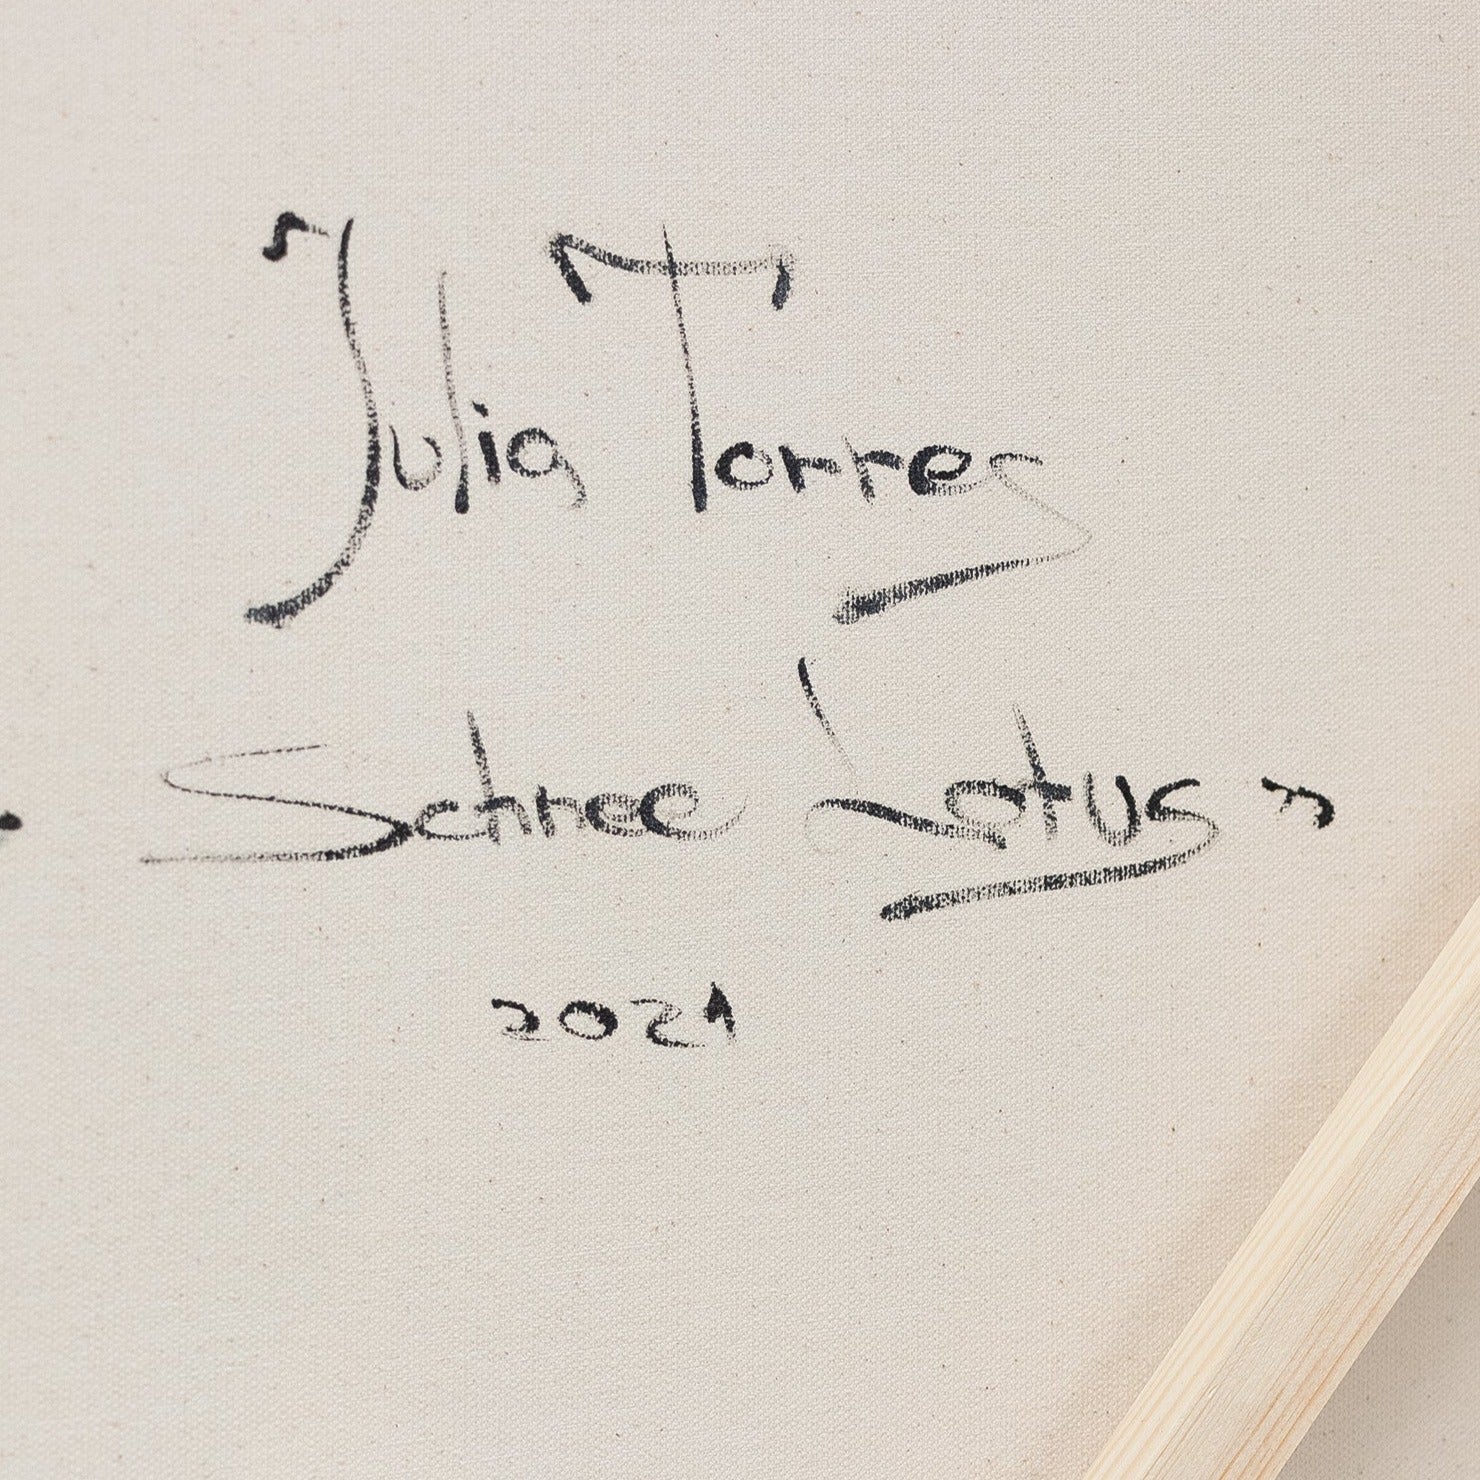 Julia Torres
Schree Lotus"
2021